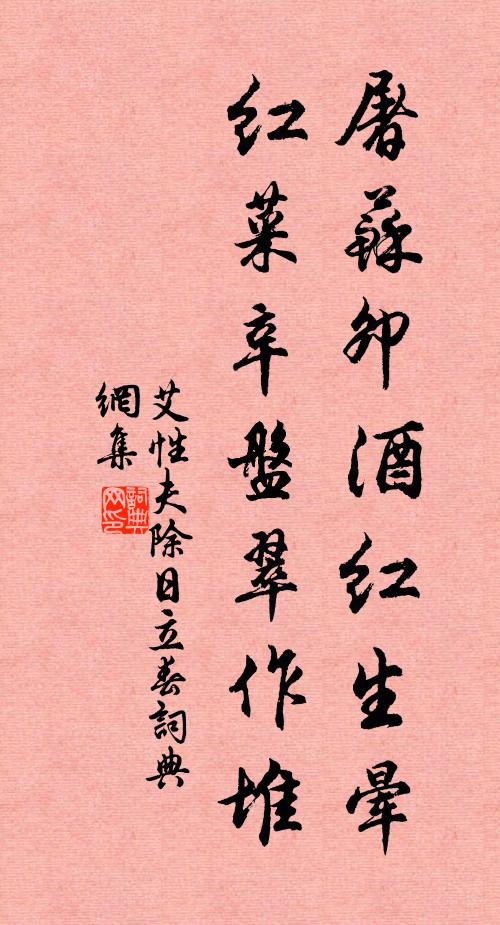 屠蘇卯酒紅生暈
紅菜辛盤翠作堆
艾性夫除日立春詞典
網集
詞典网印